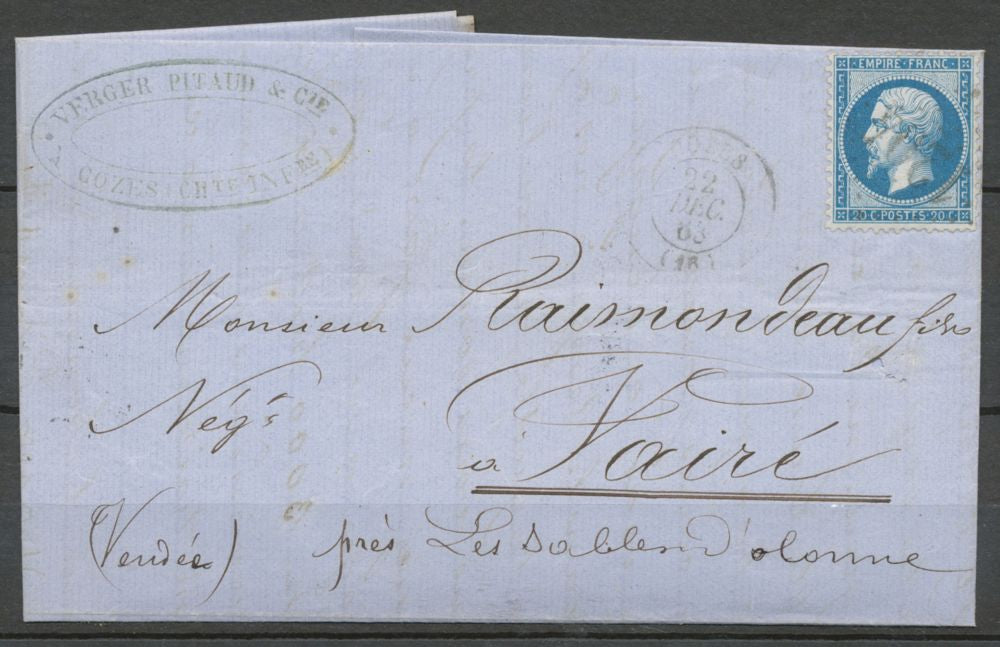 VERGER PITAUD & CIE
A COZES (CHTE INFRE)
COZES
22
DEC.
63
(16)
EMPIRE · FRANC
20 C POSTES 20 C
Monsieur Raimondeau fils
Négts
à Vairé
(Vendée) près Les Sables d'olonne